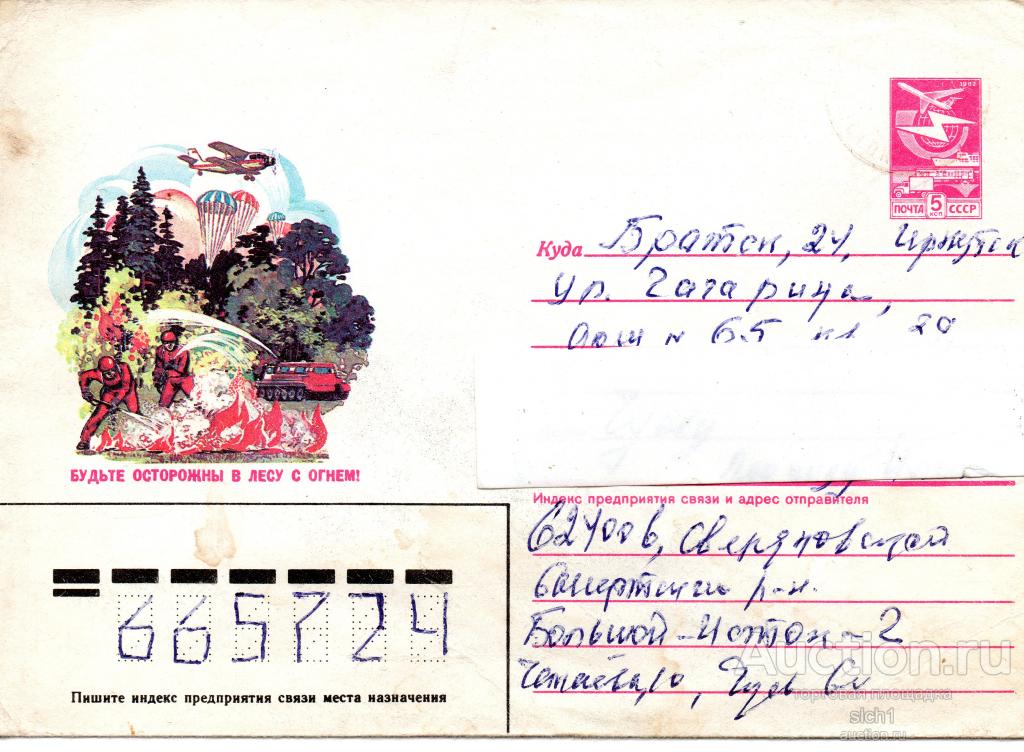 1982
ПОЧТА 5 КОП СССР
Куда Братск, 24, Иркутск
ул. Гагарина,
дом № 65 кв 20
БУДЬТЕ ОСТОРОЖНЫ В ЛЕСУ С ОГНЕМ!
Индекс предприятия связи и адрес отправителя
Свердловской
р-н.
Большой-Исток-2
665724
Пишите индекс предприятия связи места назначения
Auction.ru
торговая площадка
slch1
auction.ru